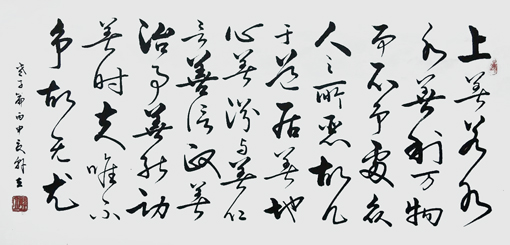 上善若水
水善利万物
而不争处众
人之所恶故几
于道居善地
心善渊与善仁
言善信政善
治事善能动
善时夫唯不
争故无尤
老子 丙申